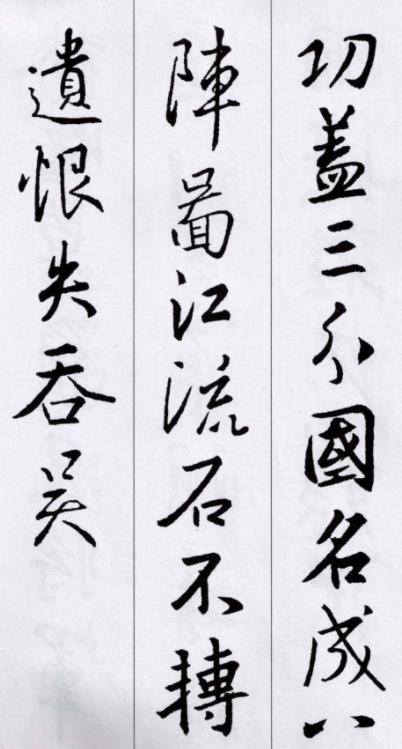 功盖三分國名成八
陣啚江流石不轉
遺恨失吞吴